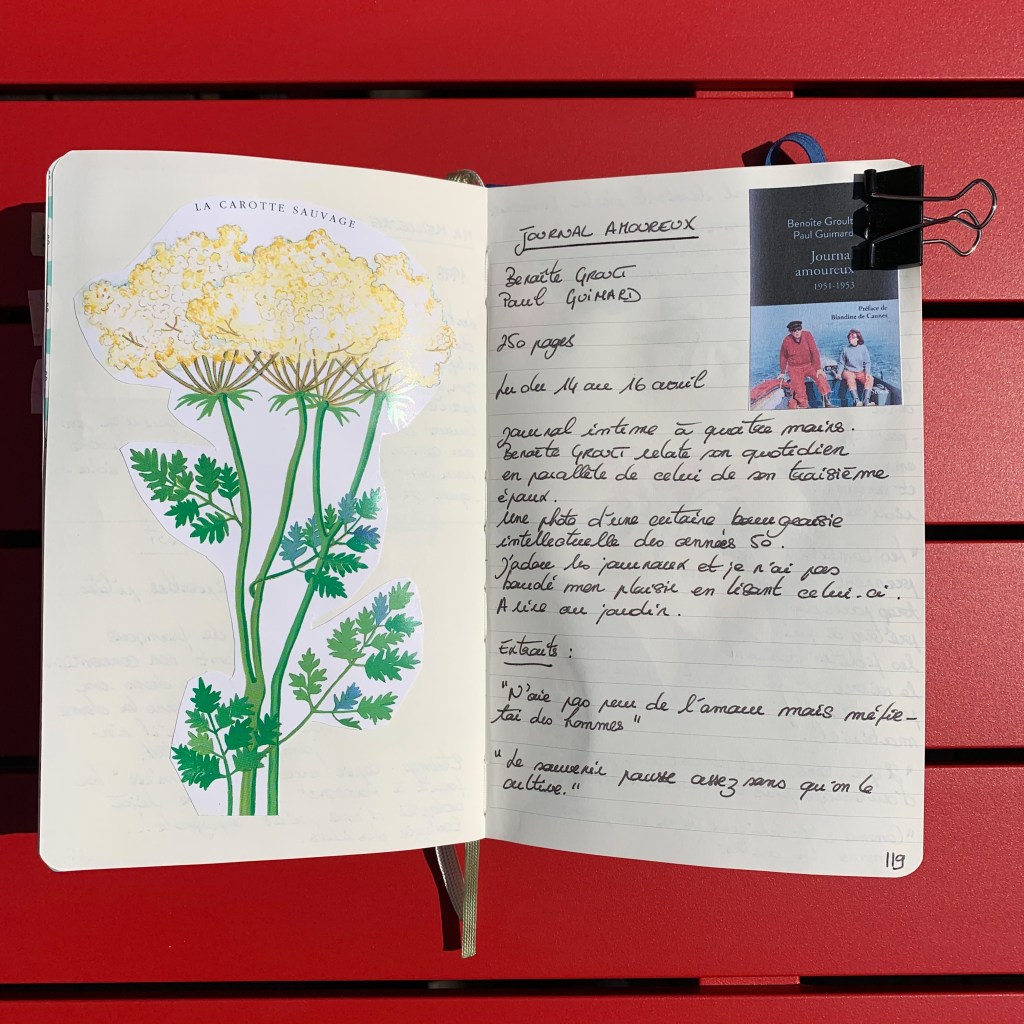 LA CAROTTE SAUVAGE
JOURNAL AMOUREUX
Benoîte GROULT
Paul GUIMARD
250 pages
Lu du 14 au 16 avril
Journal intime à quatre mains.
Benoîte GROULT relate son quotidien
en parallèle de celui de son troisième
époux.
Une photo d'une certaine bourgeoisie
intellectuelle des années 50.
J'adore les journaux et je n'ai pas
boudé mon plaisir en lisant celui-ci.
A lire au jardin.
Extraits :
"N'aie pas peur de l'amour mais méfie-
toi des hommes"
"Le souvenir pousse assez sans qu'on le
cultive."
119
Benoîte Groult
Paul Guimard
Journal
amoureux
1951-1953
Préface de
Blandine de Caunes
Stock